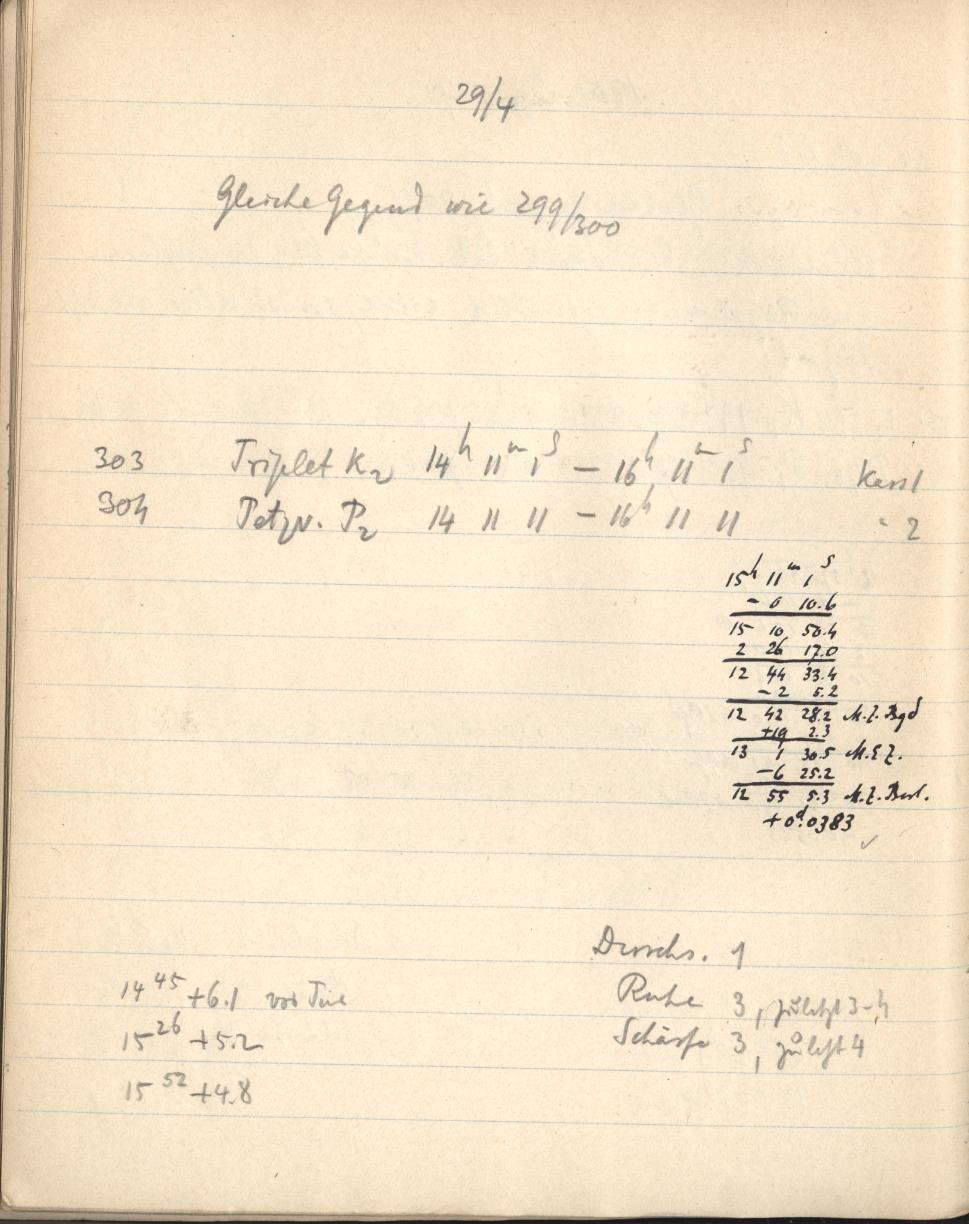 29/4
Gleiche Gegend wie 299/300
303 Triplet K2 14h 11m 1s — 16h 11m 1s Kass1
304 Petzv. P2 14 11 11 — 16h 11 11 " 2
15h 11m 1s
- 0 10.6
15 10 50.4
2 26 17.0
12 44 33.4
- 2 5.2
12 42 28.2 M.Z. Bgd
+19 2.3
13 1 30.5 M.E.Z.
-6 25.2
12 55 5.3 M.Z. Berl.
+0d.0383
Durchs. 1
Ruhe 3, zuletzt 3-4
Schärfe 3, zuletzt 4
14 45 +6.1 vor Tür
15 26 +5.2
15 52 +4.8